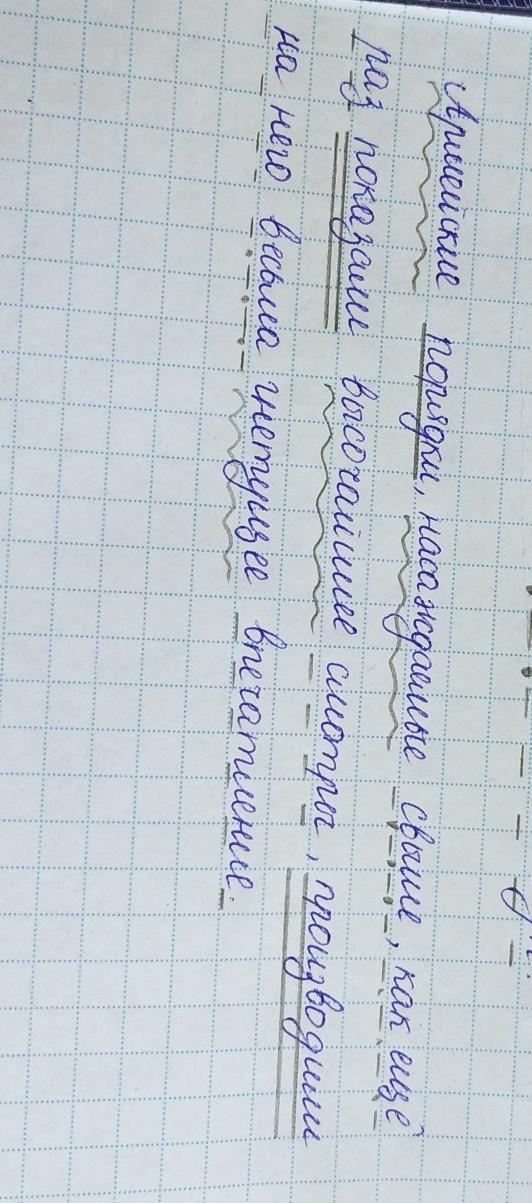 Армейские порядки, насаждаемые свыше, как ещё
раз показали высочайшее смотры, производили
на него весьма гнетущее впечатление.